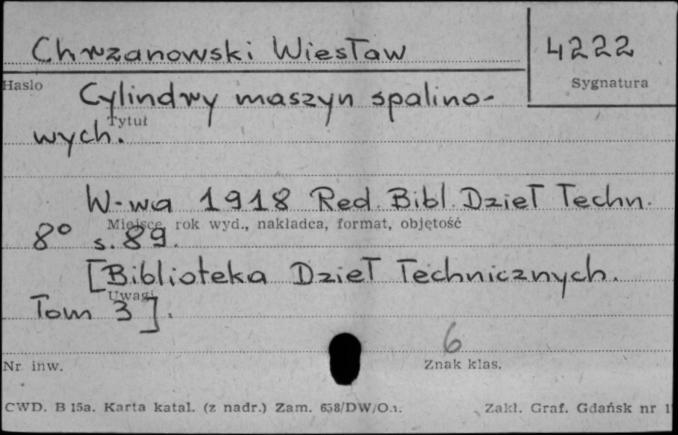 Chrzanowski Wiesław
4222
Hasło
Sygnatura
Cylindry maszyn spalino-
Tytuł
wych.
W-wa 1918 Red. Bibl. Dzieł Techn.
Miejsce, rok wyd., nakładca, format, objętość
8° s. 89.
[Biblioteka Dzieł Technicznych.
Uwagi
Tom 3].
6
Nr inw.
Znak klas.
CWD. B 15a. Karta katal. (z nadr.) Zam. 658/DW/O.
Zakł. Graf. Gdańsk nr